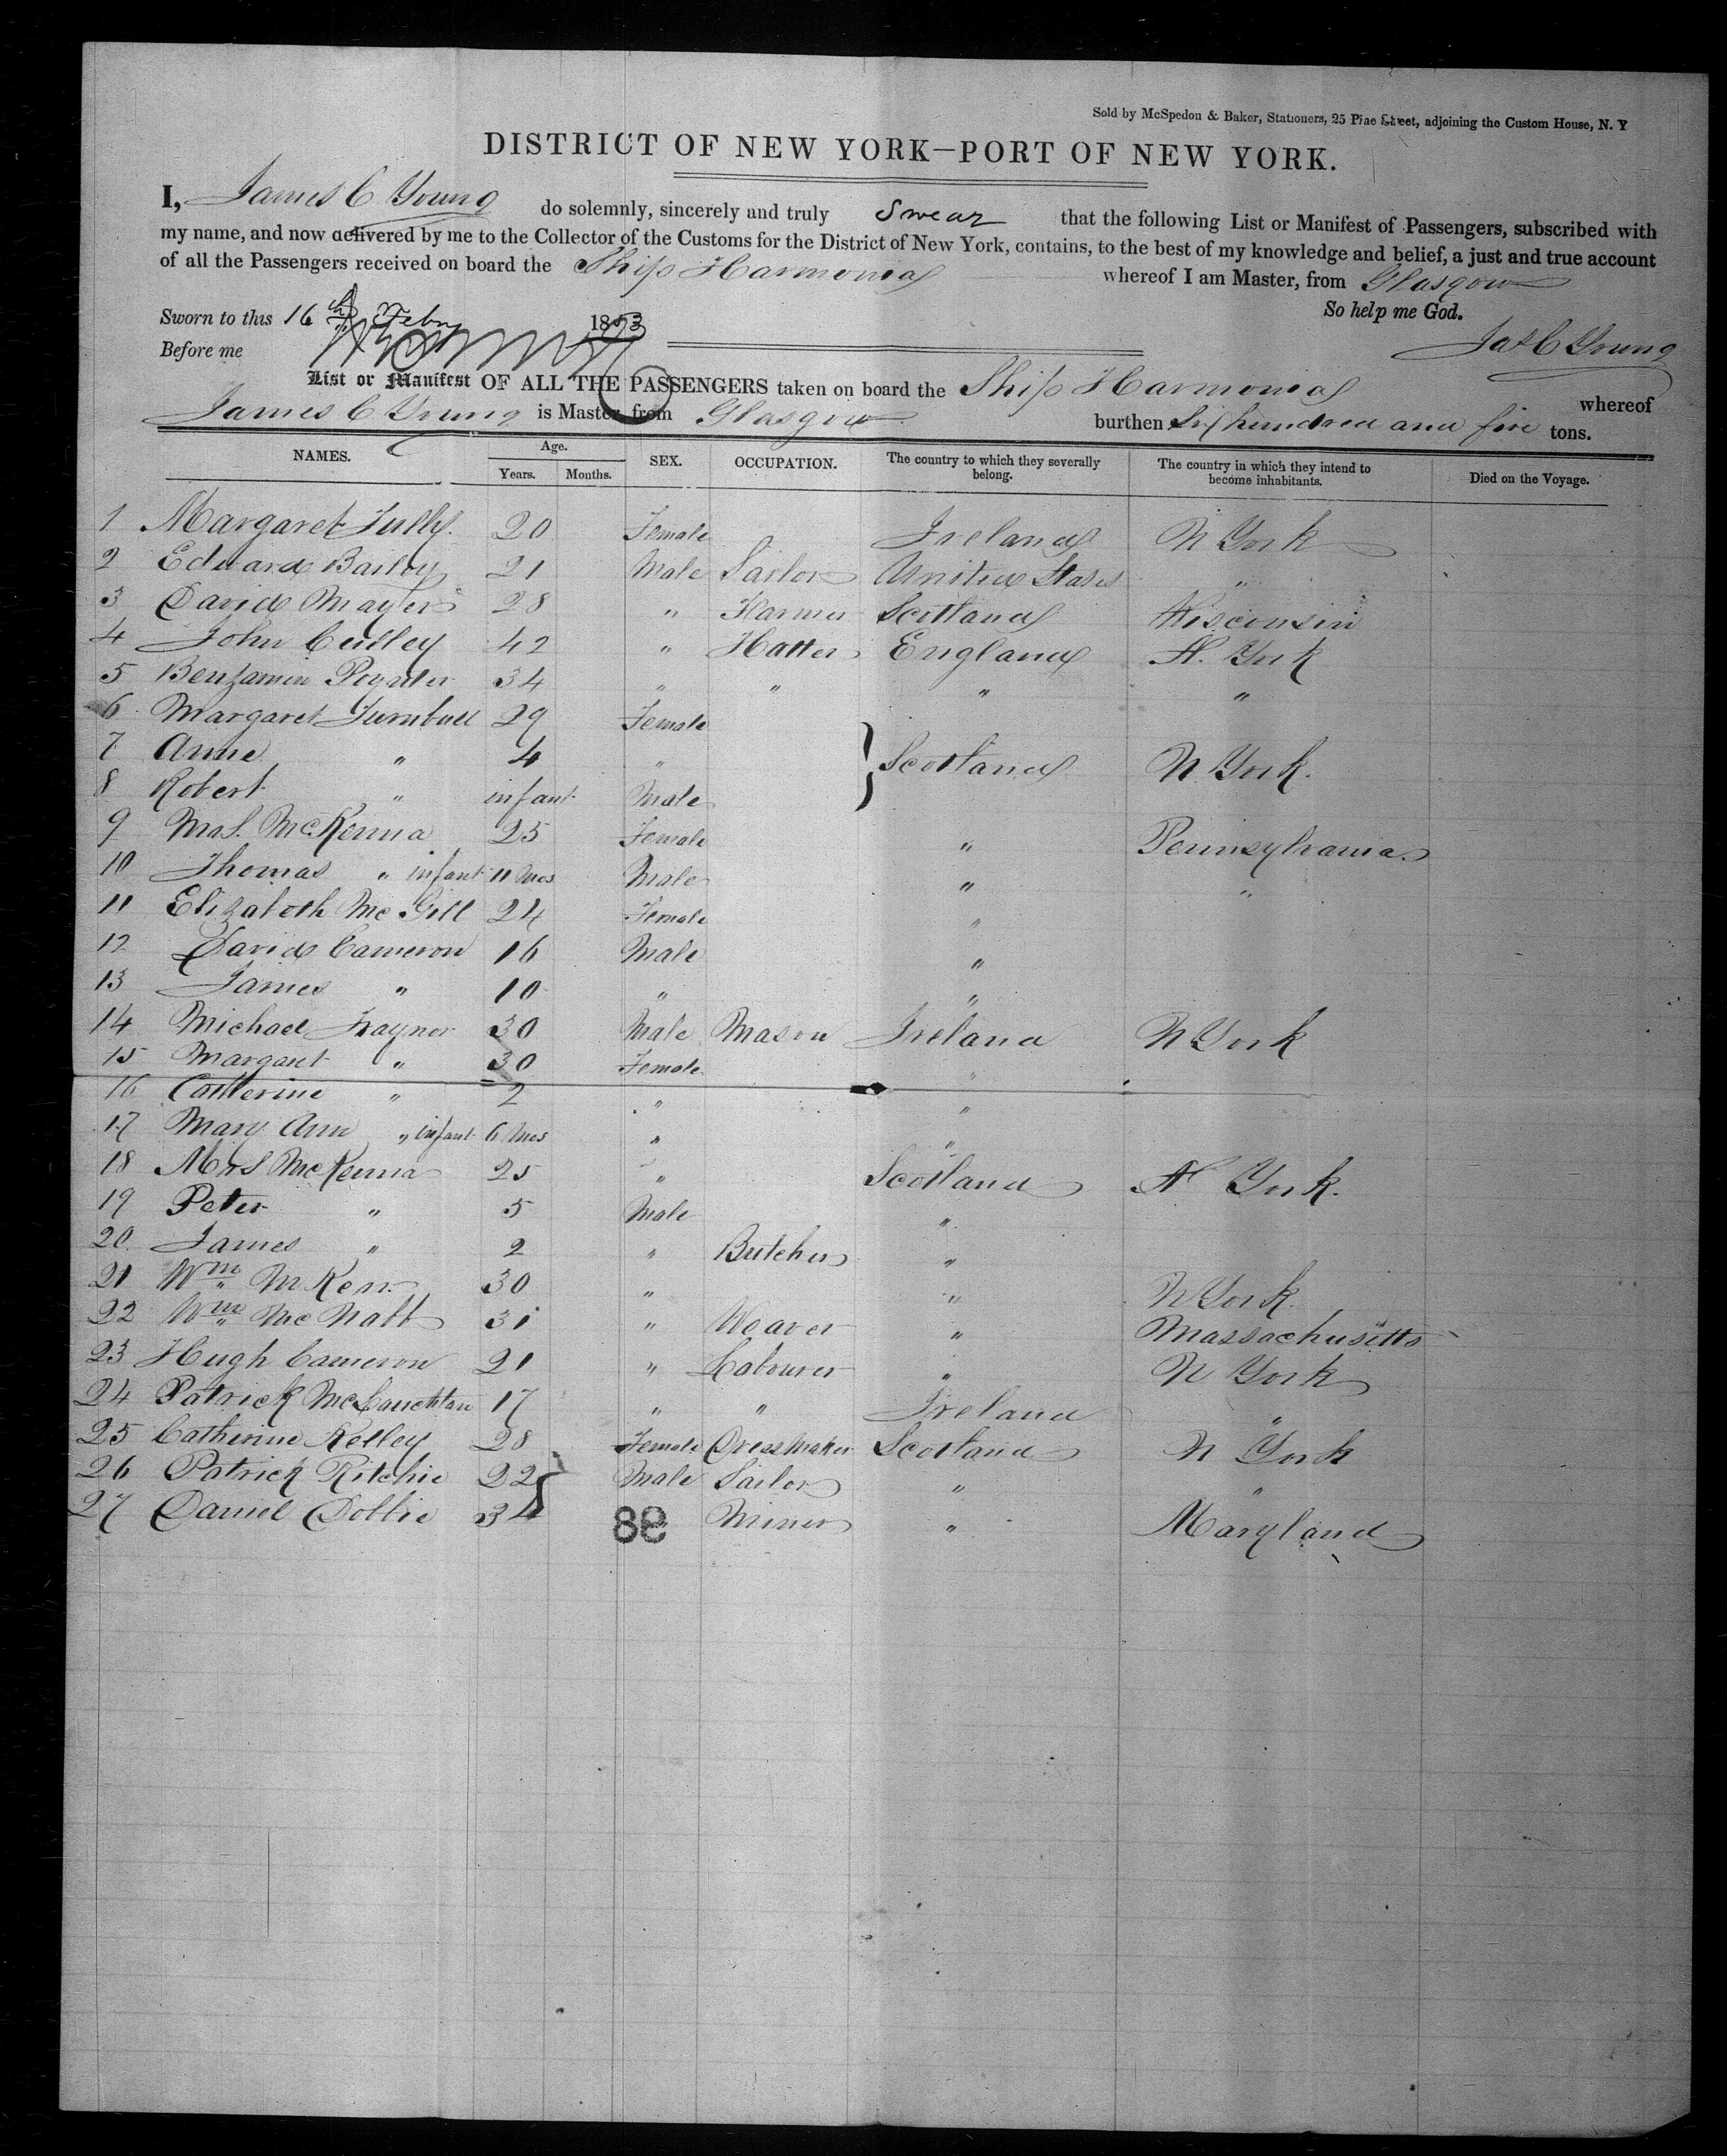 Sold by McSpedon & Baker, Stationers, 25 Pine Street, adjoining the Custom House, N. Y
DISTRICT OF NEW YORK—PORT OF NEW YORK.
I, James C Young do solemnly, sincerely and truly Swear that the following List or Manifest of Passengers, subscribed with
my name, and now delivered by me to the Collector of the Customs for the District of New York, contains, to the best of my knowledge and belief, a just and true account
of all the Passengers received on board the Ship Harmonia whereof I am Master, from Glasgow
So help me God.
Sworn to this 16th Feby 1853
Jas C Young
Before me
List or Manifest OF ALL THE PASSENGERS taken on board the Ship Harmonia whereof
James C Young is Master, from Glasgow burthen Six hundred and five tons.
NAMES. Age. Years. Months. SEX. OCCUPATION. The country to which they severally belong. The country in which they intend to become inhabitants. Died on the Voyage.
1 Margaret 20 Female Ireland N York
2 Edward Bailey 21 Male Sailor United States "
3 David 28 " Farmer Scotland Wisconsin
4 John 42 " Hatter England N. York
5 Benjamin Poynter 34 " " " "
6 Margaret Turnbull 29 Female
7 Anne " 4 " } Scotland N York.
8 Robert " infant Male
9 Mrs. McKenna 25 Female " Pennsylvania
10 Thomas " infant 11 mos Male " "
11 Elizabeth McGill 24 Female "
12 David Cameron 16 Male "
13 James " 10 " "
14 Michael Traynor 30 Male Mason Ireland N York
15 Margaret " 30 Female "
16 Catherine " 2 " "
17 Mary Ann " infant 6 mos " "
18 Mrs McKenna 25 " Scotland N York.
19 Peter " 5 Male "
20 James " 2 " Butcher "
21 Wm M Kerr 30 " " N York.
22 Wm McNatt 31 " Weaver " Massachusetts
23 Hugh Cameron 21 " Labourer " N York
24 Patrick McLauchlan 17 " " Ireland "
25 Catherine Kelley 28 Female Dressmaker Scotland N York
26 Patrick Ritchie 22 Male Sailor " "
27 Daniel Dobbie 34 " Miner " Maryland
98